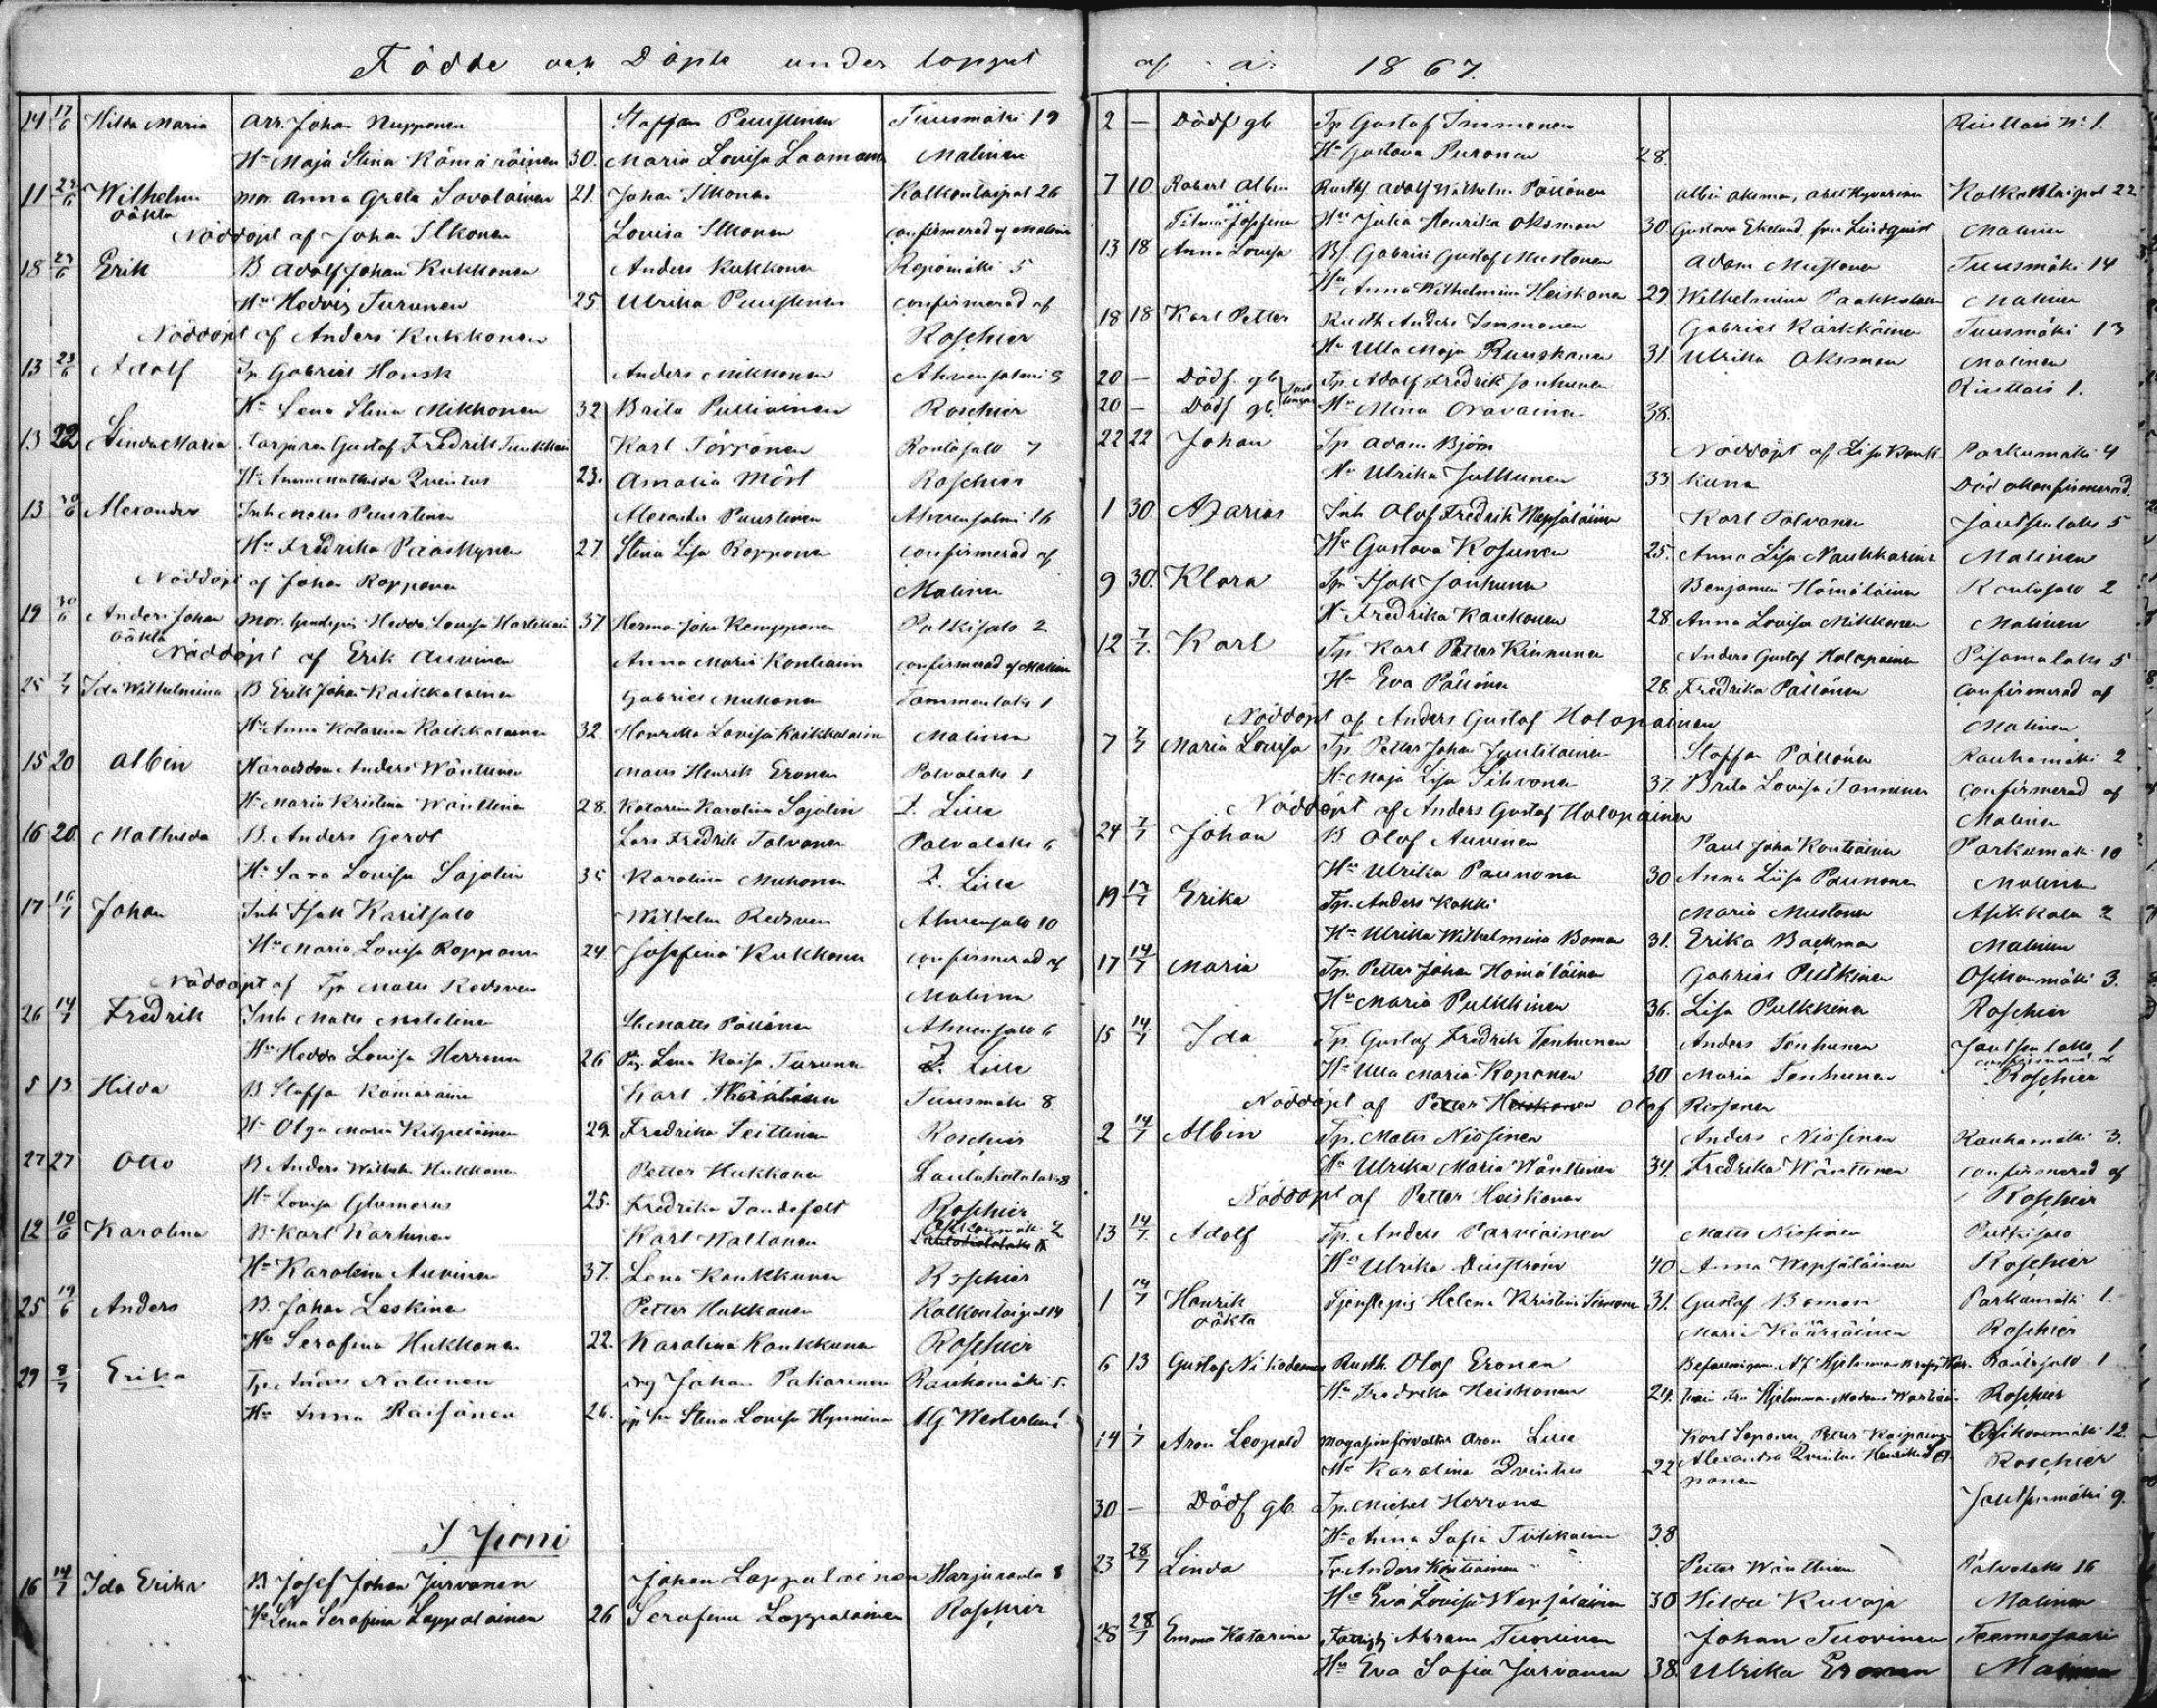 Födde och Döpte under loppet
24 17/6 Hilda Maria Arr. Johan Nupponen Staffan Puustinen Tuusmäki 19
Hu Maja Stina Kämäräinen 30. Maria Lovisa Laamanen Malinen
11 24/6 Wilhelm mor Anna Greta Savolainen 21. Johan Ilkonen Kolkontaipal 26
oäkta Nöddöpt af Johan Ilkonen Lovisa Ilkonen confirmerad af Malinen
18 23/6 Erik B Adolf Johan Kukkonen Anders Kukkonen Repomäki 5
Hu Hedvig Turunen 25 Ulrika Puustinen confirmerad af
Nöddöpt af Anders Kukkonen Roschier
13 23/6 Adolf Tp. Gabriel Housk Anders Mikkonen Ahvensalmi 5
Hu Lena Stina Mikkonen 32 Brita Pulliainen Roschier
13 22 Linda Maria Gustaf Fredrik Karl Törrönen Rantasalo 7
Hu Anna Mathilda Qvintus 23. Amalia Mört Roschier
13 30/6 Alexander Inh Matts Puustinen Alexander Puustinen Ahvensalmi 16
Hu Fredrika Pääskynen 27 Stina Lisa Ropponen confirmerad af
Nöddöpt af Johan Ropponen Malinen
19 30/6 Anders Johan mor. Hedda Lovisa Hartikain 37 Herman Joh. Kemppanen Putkisalo 2
oäkta Nöddöpt af Erik Auvinen Anna Maria Kontiainen confirmerad af Malinen
25 7/7 Ida Wilhelmina B Erik Johan Kaikkalainen Gabriel Muhonen Tammenlaks 1
Hu Anna Katarina Kaikkalainen 32 Henrika Lovisa Kaikkalainen Malinen
15 20 Albin Häradsdom Anders Wänttinen Matts Henrik Eronen Palvalaks 1
Hu Maria Kristina Wänttinen 28. Katarina Karolina Sajolin Z. Lille
16 20. Mathilda B. Anders Gerdt Lars Fredrik Talvanen Palvalaks 6
Hu Sara Lovisa Sajolin 35 Karolina Muhonen Z. Lille
17 16/7 Johan Inh Isak Karitsalo Wilhelm Redsven Ahvensalo 10
Hu Maria Lovisa Ropponen 24 Josefina Kukkonen confirmerad af
Nöddöpt af Tp Matts Redsven Malinen
26 14/7 Fredrik Inh Matts Matilainen Matts Pällönen Ahvensalo 6
Hu Hedda Lovisa Herranen 26 Pig. Lena Kaisa Turunen Z. Lille
5 13 Hilda B Staffan Kämäräinen Karl Tuusmäki 8
Hu Olga Maria Kilpeläinen 29. Fredrika Seittinen Roschier
27 27 Otto B Anders Wilhelm Hukkanen Petter Hukkanen Lautakotalaks 8
Hu Lovisa Glumerus 25. Fredrika Tandefelt Roschier
12 10/6 Karolina B Karl Karhinen Karl Wattanen Osikonmäki 2
Hu Karolina Auvinen 37. Lena Kaukkunen Roschier
25 19/6 Anders B. Johan Leskinen Petter Hukkanen Kolkontaipal 14
Hu Serafina Hukkanen 22. Karolina Kaukkunen Roschier
29 8/7 Erika Tp. Anders Natunen drg Johan Pakarinen Rauhamäki 5.
Hu Anna Raisänen 26. Stina Lovisa Hynninen A G Westerlund
I Joroni
16 14/7 Ida Erika B Josef Johan Jurvanen Johan Lappalainen Harjuranta 8
Hu Lena Serafina Lappalainen 26 Serafina Lappalainen Roschier
af år 1867.
2 — Dödf gb Tp Gustaf Immonen Riistlais No 1.
Hu Gustava Puronen 28.
7 10 Robert Albin Rusth Adolf Wilhelm Pällönen Albin Oksman, Abel Hyvärinen Kolkontaipal 22
Josefina Hu Julia Henrika Oksman 30. Gustava Ekelund fru Lindqvist Malinen
13 18 Anna Lovisa Bf. Gabriel Gustaf Mustonen Adam Mustonen Tuusmäki 14
Hu Anna Wilhelmina Heiskanen 29. Wilhelmina Paakkolainen Malinen
18 18 Karl Petter Rusth Anders Immonen Gabriel Kärkkäinen Tuusmäki 13
Hu Ulla Maja Ruuskanen 31. Ulrika Oksman Malinen
20 — Dödf. gb Tp. Adolf Fredrik Jouhunen Riistlais 1.
20 — Dödf gb. Hu Mina Oravainen 38.
22 22 Johan Tp Adam Björn Nöddöpt af Lisa Kauk- Parkumäki 4
Hu Ulrika Julkunen 33 kuna Död okonfirmerad.
1 30. Azarias Inh Olof Fredrik Wepsäläinen Karl Talvanen Joutsenlaks 5
Hu Gustava Kosunen 25. Anna Lisa Naukkarinen Malinen
9 30. Klara Tp. Isak Jouhunen Benjamin Hämäläinen Rantasalo 2
Hu Fredrika Kaukonen 28 Anna Lovisa Mikkonen Malinen
12 7/7. Karl Tp Karl Petter Kinnunen Anders Gustaf Holopainen Pisamalaks 5
Hu Eva Pällönen 28. Fredrika Pällönen confirmerad af
Nöddöpt af Anders Gustaf Holopainen Malinen
7 7/7 Maria Lovisa Tp. Petter Johan Juutilainen Staffan Pällönen Rauhamäki 2
Hu Maja Lisa Sihvonen 37. Brita Lovisa Tanninen confirmerad af
Nöddöpt af Anders Gustaf Holopainen Malinen
24 7/7 Johan B Olof Auvinen Paul Johan Kontiainen Parkumäki 10
Hu Ulrika Paunonen 30 Anna Liisa Paunonen Malinen
19 14/7 Erika Tp. Anders Kokki Maria Mustonen Asikkala 2
Hu Ulrika Wilhelmina Boman 31. Erika Backman Malinen
17 14/7 Maria Tp. Petter Johan Hämäläinen Gabriel Pulkkinen Osikonmäki 3.
Hu Maria Pulkkinen 36. Lisa Pulkkinen Roschier
15 14/7 Ida Tp. Gustaf Fredrik Tenhunen Anders Tenhunen Joutsenlaks 1
confirmerad af
Hu Ulla Maria Koponen 30 Maria Tenhunen Roschier
Nöddöpt af Petter Heiskanen Olof Rissanen
2 14/7 Albin Tp. Matts Nissinen Anders Nissinen Rauhamäki 3.
Hu Ulrika Maria Wänttinen 34. Fredrika Wänttinen confirmerad af
Nöddöpt af Petter Heiskanen Roschier
13 14/7 Adolf Tp. Anders Parviainen Matts Nissinen Putkisalo
Hu Ulrika 40 Anna Wepsäläinen Roschier
1 14/7 Henrik Tjenstepig Helena Kristina Simonen 31. Gustaf Boman Parkumäki 1.
oäkta Maria Kääriäinen Roschier
6 13 Gustaf Nikodemus Rusth. Olof Eronen Rantasalo 1
Hu Fredrika Heiskanen 24. Roschier
14 7/7 Aron Leopold Magasinförvalter Aron Lille Karl Seponen, Petter Osikonmäki 12.
Hu Karolina Qvintus 22 Alexandra Qvintus Henrika Sep- Roschier
ponen
30 — Dödf gb. Tp. Michel Herranen Joutsenmäki 9.
Hu Anna Sofia Tiilikainen 38
23 28/7 Linda Tp Anders Kontiainen Petter Wänttinen Palvalaks 16
Hu Eva Lovisa Wepsäläinen 30 Hilda Kuvaja Malinen
28 28/7 Emma Katarina Abram Tuovinen Johan Tuovinen Teemassaari
Hu Eva Sofia Jurvanen 38. Ulrika Eronen Malinen